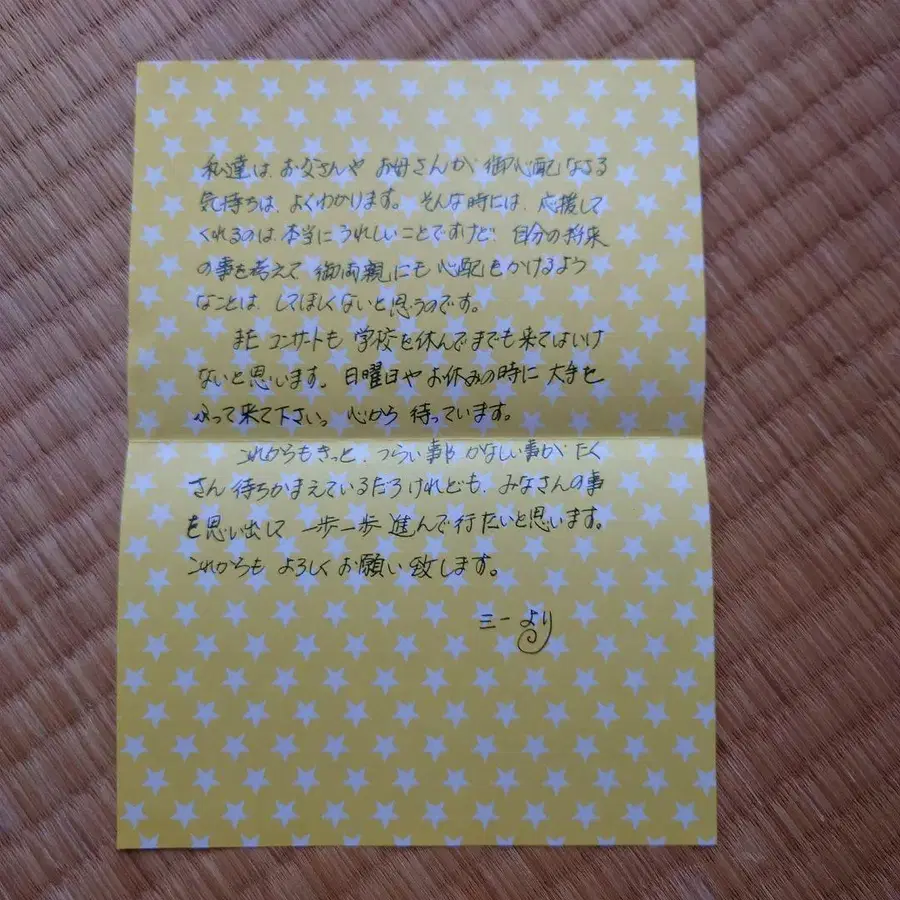 私達は、お父さんや お母さんが 御心配なさる
気持ちは、よくわかります。そんな時には、応援して
くれるのは、本当にうれしいことですけど、自分の将来
の事を考えて 御両親にも心配をかけるよう
なことは、してほしくないと思うのです。
また コンサートも 学校を休んでまでも来てはいけ
ないと思います。日曜日や お休みの時に 大手を
ふって来て下さい。心から 待っています。
これからもきっと、つらい事や かなしい事が たく
さん 待ちかまえているだろけれども、みなさんの事
を思い出して 一歩一歩 進んで行たいと思います。
これからも よろしく お願い致します。
三一より